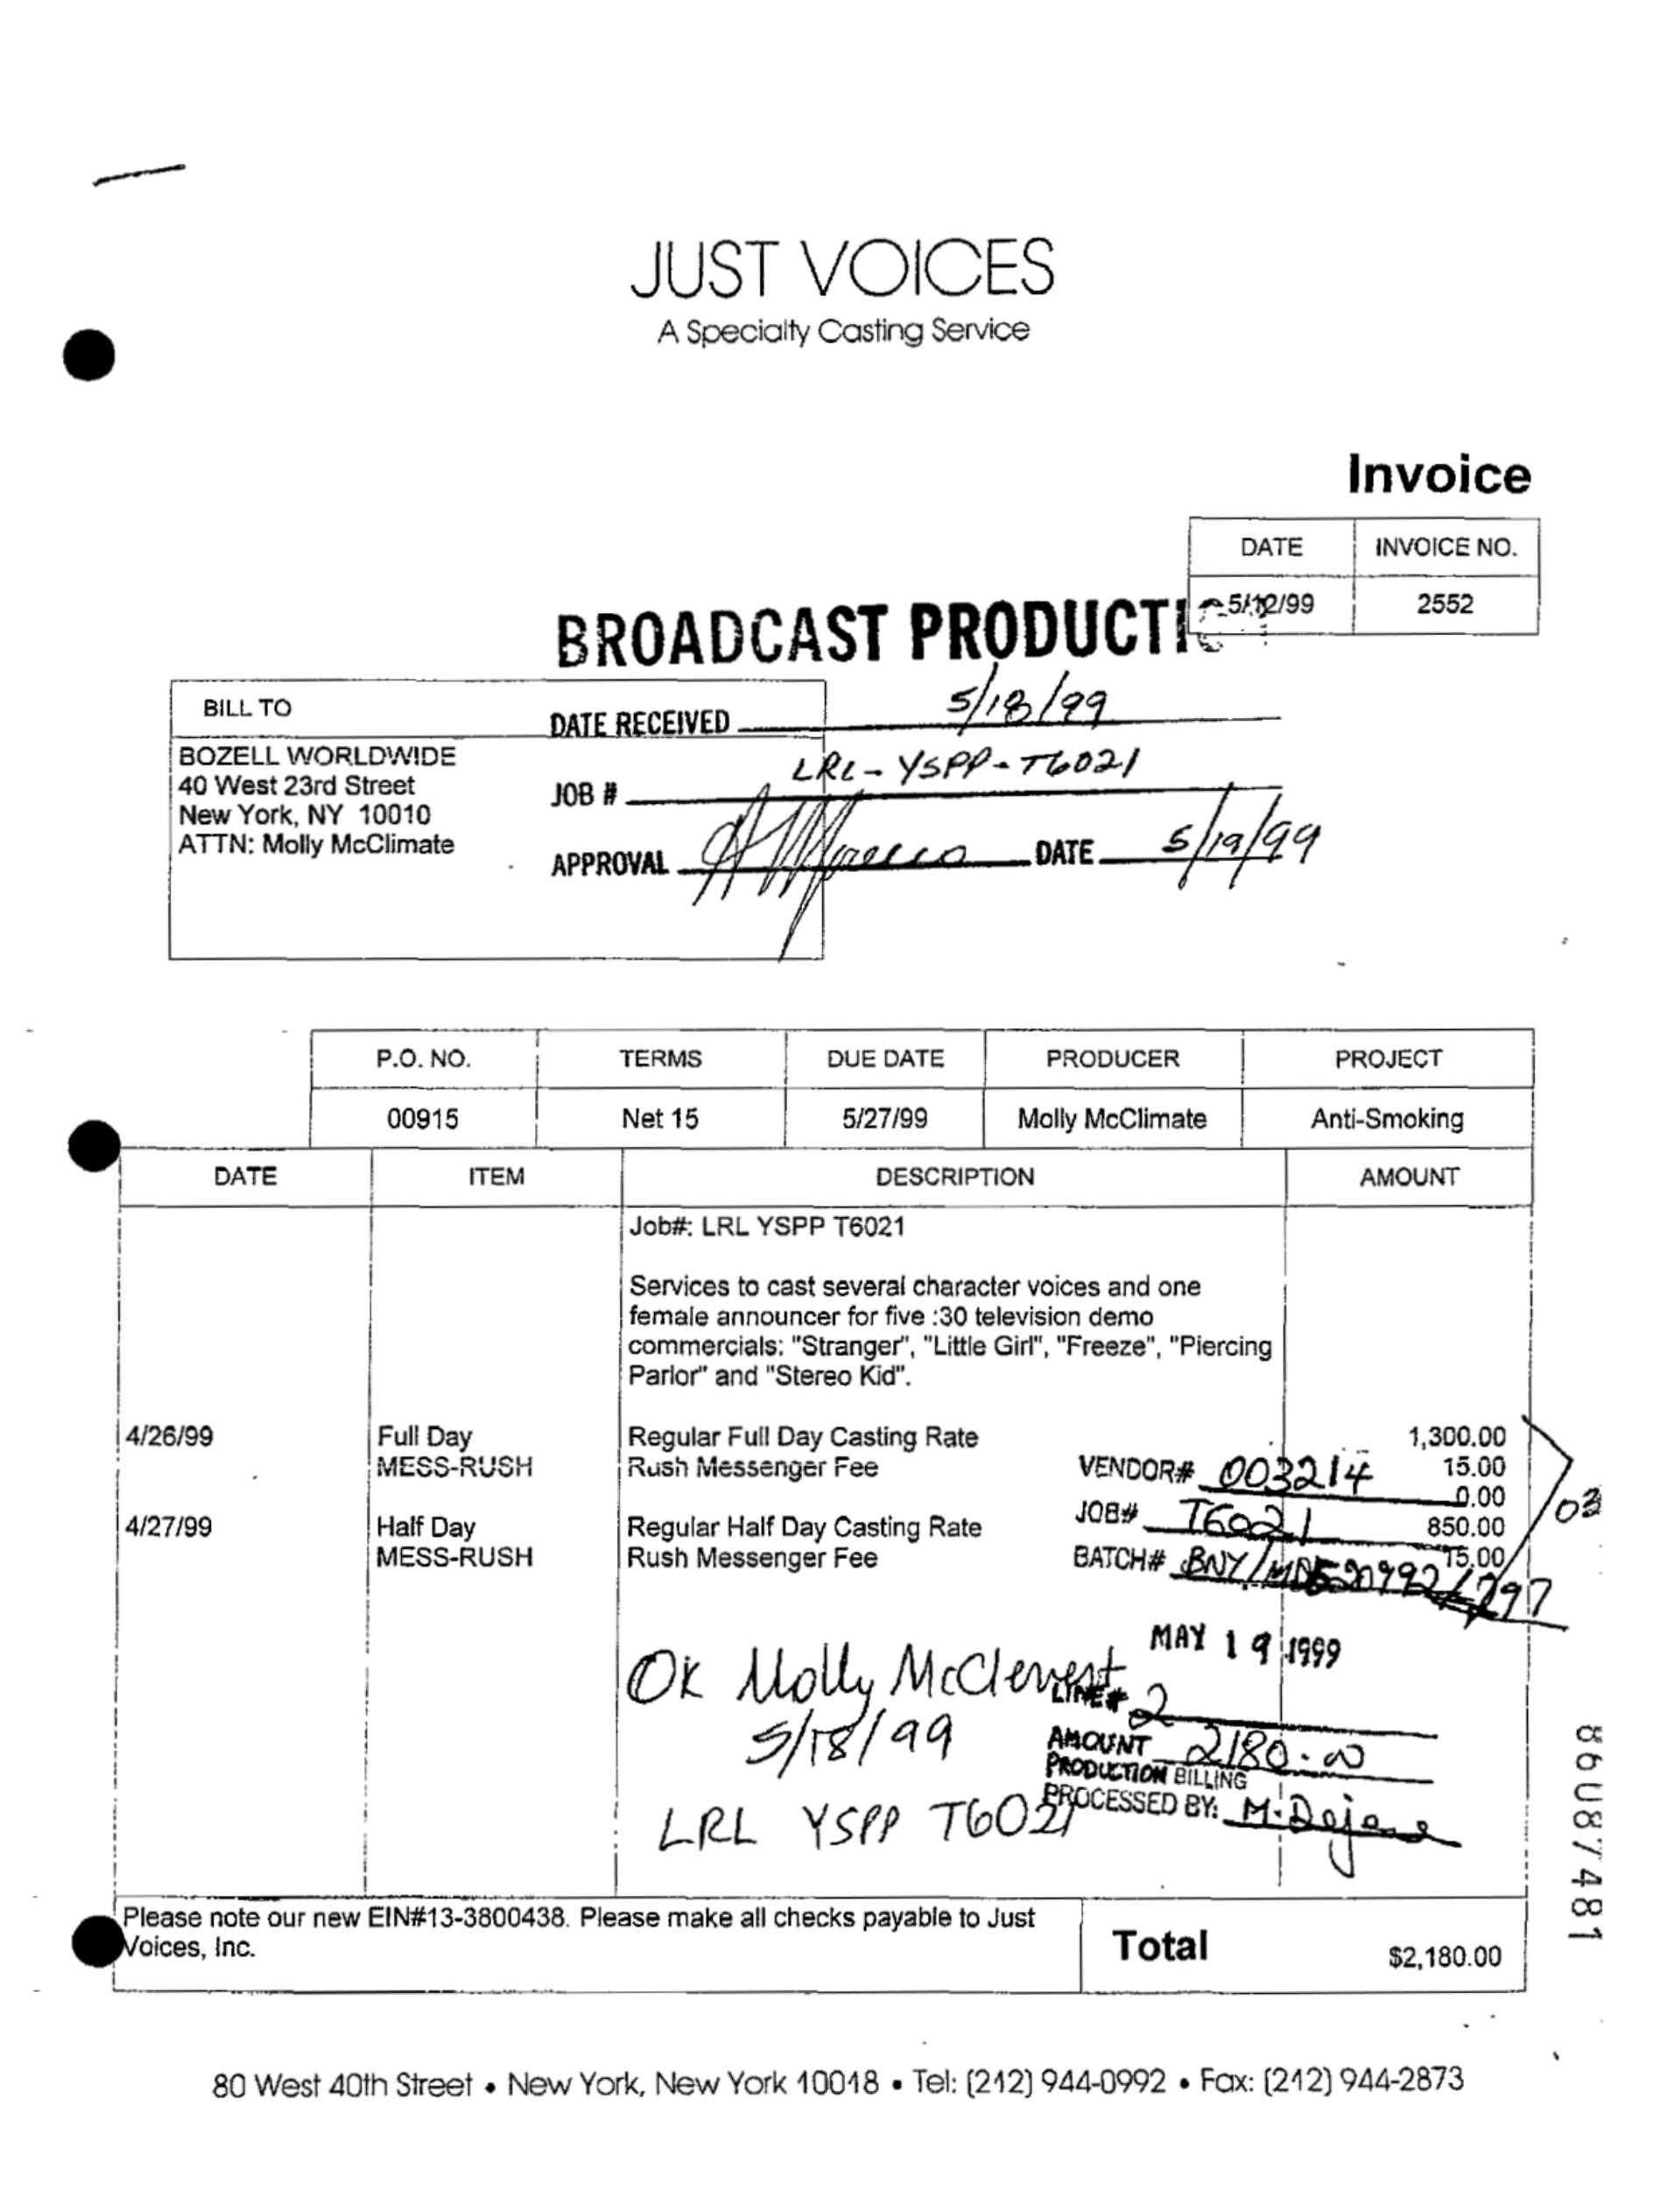 JUST VOICES
A Specialty Casting Service
Invoice
DATE INVOICE NO.
5/12/99 2552
BROADCAST PRODUCTI
BILL TO
DATE RECEIVED 5/18/99
BOZELL WORLDWIDE
40 West 23rd Street
New York, NY 10010
ATTN: Molly McClimate
JOB # LRL-YSPP-T6021
APPROVAL DATE 5/19/99
P.O. NO. TERMS DUE DATE PRODUCER PROJECT
00915 Net 15 5/27/99 Molly McClimate Anti-Smoking
DATE ITEM DESCRIPTION AMOUNT
Job#: LRL YSPP T6021
Services to cast several character voices and one
female announcer for five :30 television demo
commercials: "Stranger", "Little Girl", "Freeze", "Piercing
Parlor" and "Stereo Kid".
4/26/99 Full Day Regular Full Day Casting Rate 1,300.00
MESS-RUSH Rush Messenger Fee VENDOR# 003214 15.00
0.00
03
JOB# T6021
4/27/99 Half Day Regular Half Day Casting Rate 850.00
MESS-RUSH Rush Messenger Fee BATCH# BNY/ 15.00
MAY 19 1999
OK Molly
5/18/99
LRL YSPP T6021
LINE# 2
AMOUNT 2180.00
PRODUCTION BILLING
PROCESSED BY:
86087481
Please note our new EIN#13-3800438. Please make all checks payable to Just
Voices, Inc.
Total $2,180.00
80 West 40th Street • New York, New York 10018 • Tel: (212) 944-0992 • Fax: (212) 944-2873